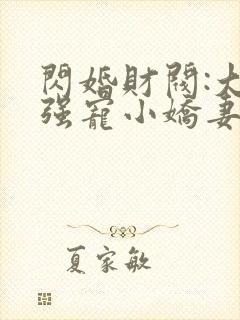 閃婚財閥:大
强寵小嬌妻
夏家敏